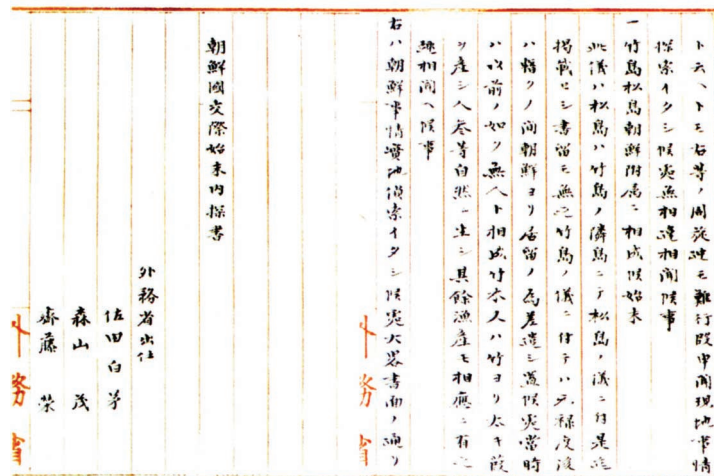 ト云ヘトモ右等ノ周旋迚モ難行段申聞現地事情
探索イタシ候処無相違相聞候事
一竹島松島朝鮮附属ニ相成候始末
此儀ハ松島ハ竹島ノ隣島ニテ松島ノ儀ニ付是迄
掲載セシ書留モ無之竹島ノ儀ニ付テハ元禄度後
ハ暫クノ間朝鮮ヨリ居留ノ為差遣シ置候處當時
ハ以前ノ如ク無人ト相成竹木又ハ竹ヨリ太キ葭
ヲ産シ人参等自然ニ生シ其餘漁産モ相應ニ有之
趣相聞ヘ候事
右ハ朝鮮事情實地偵索イタシ候處大畧書面ノ通リ
外務省
朝鮮國交際始末内探書
外務省出仕
佐田白茅
森山茂
齋藤榮
外務省